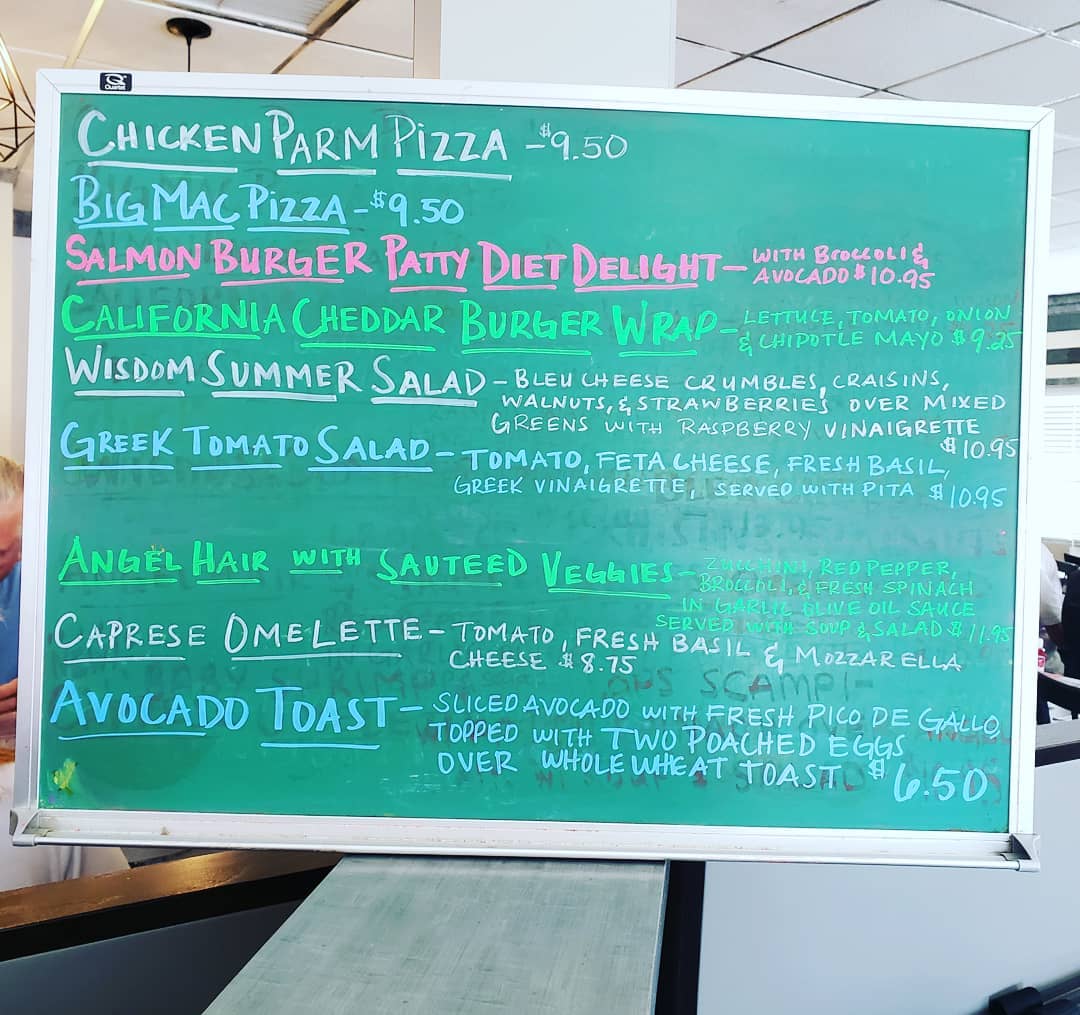 Quartet
CHICKEN PARM PIZZA - $9.50
BIG MAC PIZZA - $9.50
SALMON BURGER PATTY DIET DELIGHT - WITH BROCCOLI &
AVOCADO $10.95
CALIFORNIA CHEDDAR BURGER WRAP - LETTUCE, TOMATO, ONION
& CHIPOTLE MAYO $9.25
WISDOM SUMMER SALAD - BLEU CHEESE CRUMBLES, CRAISINS,
WALNUTS, & STRAWBERRIES OVER MIXED
GREENS WITH RASPBERRY VINAIGRETTE
$10.95
GREEK TOMATO SALAD - TOMATO, FETA CHEESE, FRESH BASIL,
GREEK VINAIGRETTE, SERVED WITH PITA $10.95
ANGEL HAIR WITH SAUTEED VEGGIES - ZUCCHINI, RED PEPPER,
BROCCOLI, & FRESH SPINACH
IN GARLIC OLIVE OIL SAUCE
SERVED WITH SOUP & SALAD $11.95
CAPRESE OMELETTE - TOMATO, FRESH BASIL & MOZZARELLA
CHEESE $8.75
SCAMPI -
AVOCADO TOAST - SLICED AVOCADO WITH FRESH PICO DE GALLO,
TOPPED WITH TWO POACHED EGGS
OVER WHOLE WHEAT TOAST $6.50